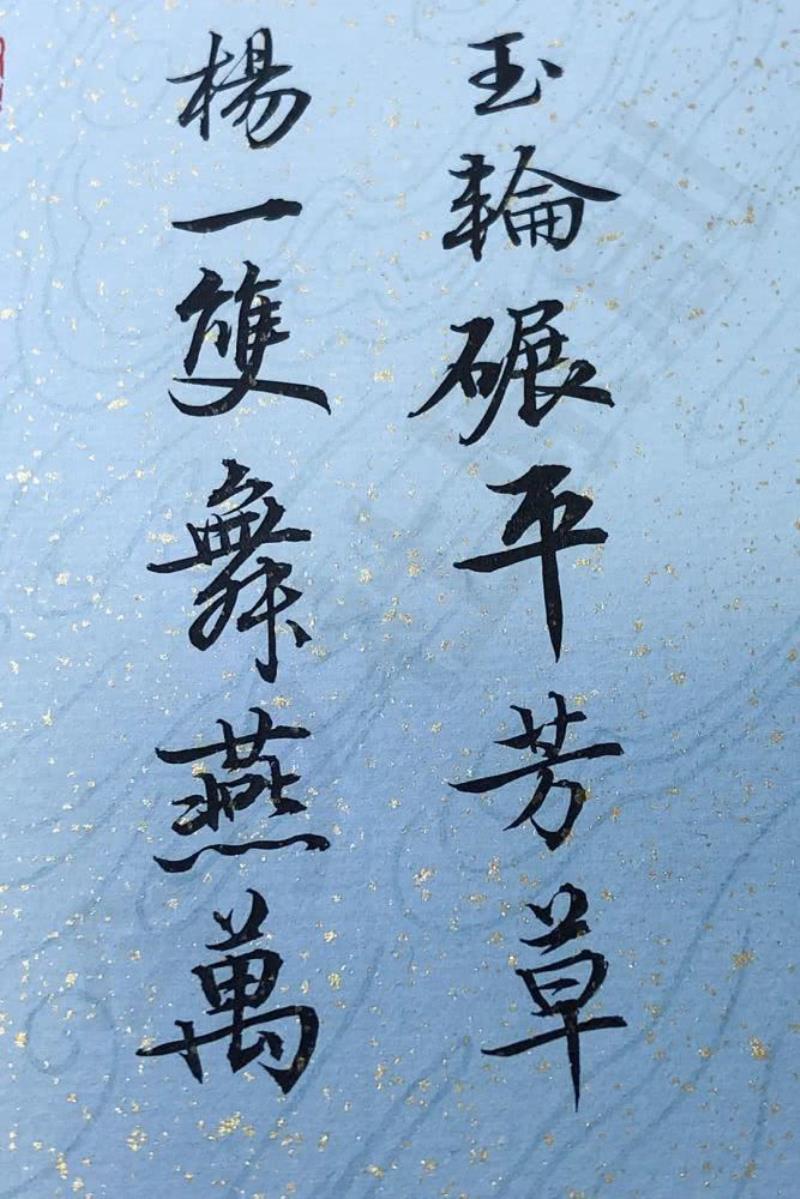 玉輪碾平芳草
楊一雙舞燕萬